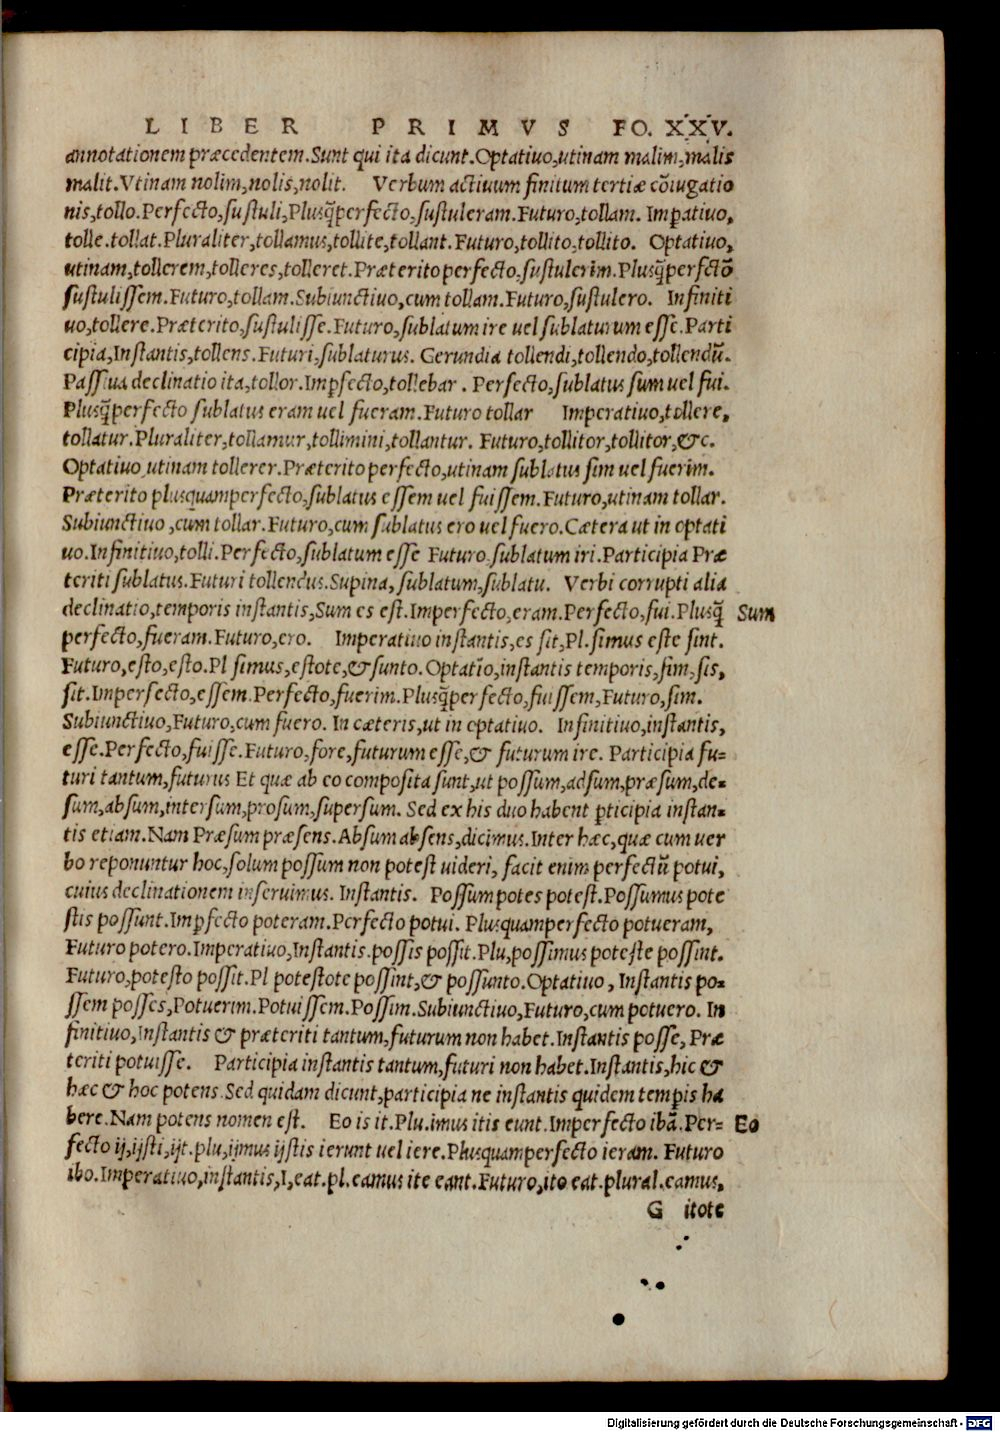 LIBER PRIMVS FO. XXV.
annotationem præcedentem.Sunt qui ita dicunt.Optatiuo,utinam malim,malis
malit.Vtinam nolim,nolis,nolit. Verbum actiuum finitum tertiæ cõiugatio
nis,tollo.Perfecto,sustuli,Plusq̃perfecto,sustuleram.Futuro,tollam. Imꝑatiuo,
tolle.tollat.Pluraliter,tollamus,tollite,tollant.Futuro,tollito,tollito. Optatiuo,
utinam,tollerem,tolleres,tolleret.Præterito perfecto,sustulerim.Plusq̃perfectõ
sustulissem.Futuro,tollam.Subiunctiuo,cum tollam.Futuro,sustulero. Infiniti
uo,tollere.Præterito,sustulisse.Futuro,sublatum ire uel sublaturum esse.Parti
cipia,Instantis,tollens.Futuri,sublaturus. Gerundia tollendi,tollendo,tollendũ.
Passiua declinatio ita,tollor.Imꝑfecto,tollebar . Perfecto,sublatus sum uel fui.
Plusq̃perfecto sublatus eram uel fueram.Futuro tollar Imperatiuo,tollere,
tollatur.Pluraliter,tollamur,tollimini,tollantur. Futuro,tollitor,tollitor,&c.
Optatiuo utinam tollerer.Præterito perfecto,utinam sublatus sim uel fuerim.
Præterito plusquamperfecto,sublatus essem uel fuissem.Futuro,utinam tollar.
Subiunctiuo ,cum tollar.Futuro,cum sublatus ero uel fuero.Cætera ut in optati
uo.Infinitiuo,tolli.Perfecto,sublatum esse Futuro.sublatum iri.Participia Præ
teriti sublatus.Futuri tollendus.Supina, sublatum,sublatu. Verbi corrupti alia
declinatio,temporis instantis,Sum es est.Imperfecto,eram.Perfecto,fui.Plusq̃ Sum
perfecto,fueram.Futuro,ero. Imperatiuo instantis,es sit,Pl.simus este sint.
Futuro,esto,esto.Pl simus,estote,&sunto.Optatĩo,instantis temporis,sim,sis,
sit.Imperfecto,essem.Perfecto,fuerim.Plusq̃perfecto,fuissem,Futuro,sim.
Subiunctiuo,Futuro,cum fuero. In cæteris,ut in optatiuo. Infinitiuo,instantis,
esse.Perfecto,fuisse.Futuro,fore,futurum esse,& futurum ire. Participia fu-
turi tantum,futurus Et quæ ab eo composita sunt,ut possum,adsum,præsum,de-
sum,absum,intersum,prosum,supersum. Sed ex his duo habent ꝑticipia instan-
tis etiam.Nam Præsum præsens.Absum absens,dicimus.Inter hæc,quæ cum uer
bo reponuntur hoc,solum possum non potest uideri, facit enim perfectũ potui,
cuius declinationem inseruimus. Instantis. Possum potes potest.Possumus pote
stis possunt.Imꝑfecto poteram.Perfecto potui. Plusquamperfecto potueram,
Futuro potero.Imperatiuo,Instantis.possis possit.Plu,possimus poteste possint.
Futuro,potesto possit.Pl potestote possint,& possunto.Optatiuo, Instantis po-
ssem posses,Potuerim.Potuissem.Possim.Subiunctiuo,Futuro,cum potuero. In
finitiuo,Instantis & præteriti tantum,futurum non habet.Instantis posse, Præ
teriti potuisse. Participia instantis tantum,futuri non habet.Instantis,hic &
hæc & hoc potens.Sed quidam dicunt,participia ne instantis quidem temꝑis ha
bere.Nam potens nomen est. Eo is it.Plu.imus itis eunt.Imperfecto ibã.Per- Eo
fecto ij,ijsti,ijt.plu,ijmus ijstis ierunt uel iere.Plusquamperfecto ieram. Futuro
ibo.Imperatiuo,instantis,I,eat.pl.eamus ite eant.Futuro,ito eat.plural.eamus,
G itote
Digitalisierung gefördert durch die Deutsche Forschungsgemeinschaft - DFG